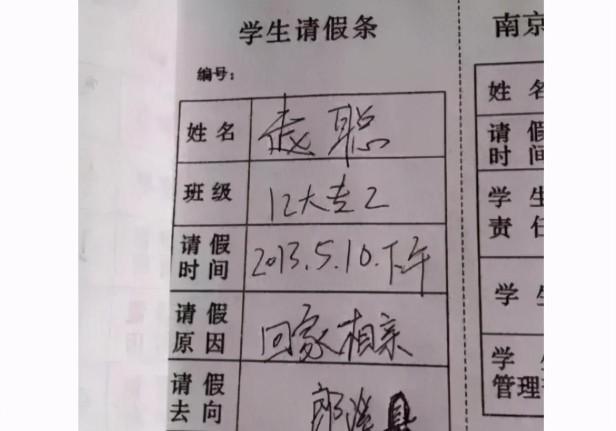 学生请假条
编号：
姓名 袁聪
班级 12大专2
请假时间 2013.5.10.下午
请假原因 回家相亲
请假去向 郎溪县
南京
姓名
请假时间
学生
责任
学生
学生
管理